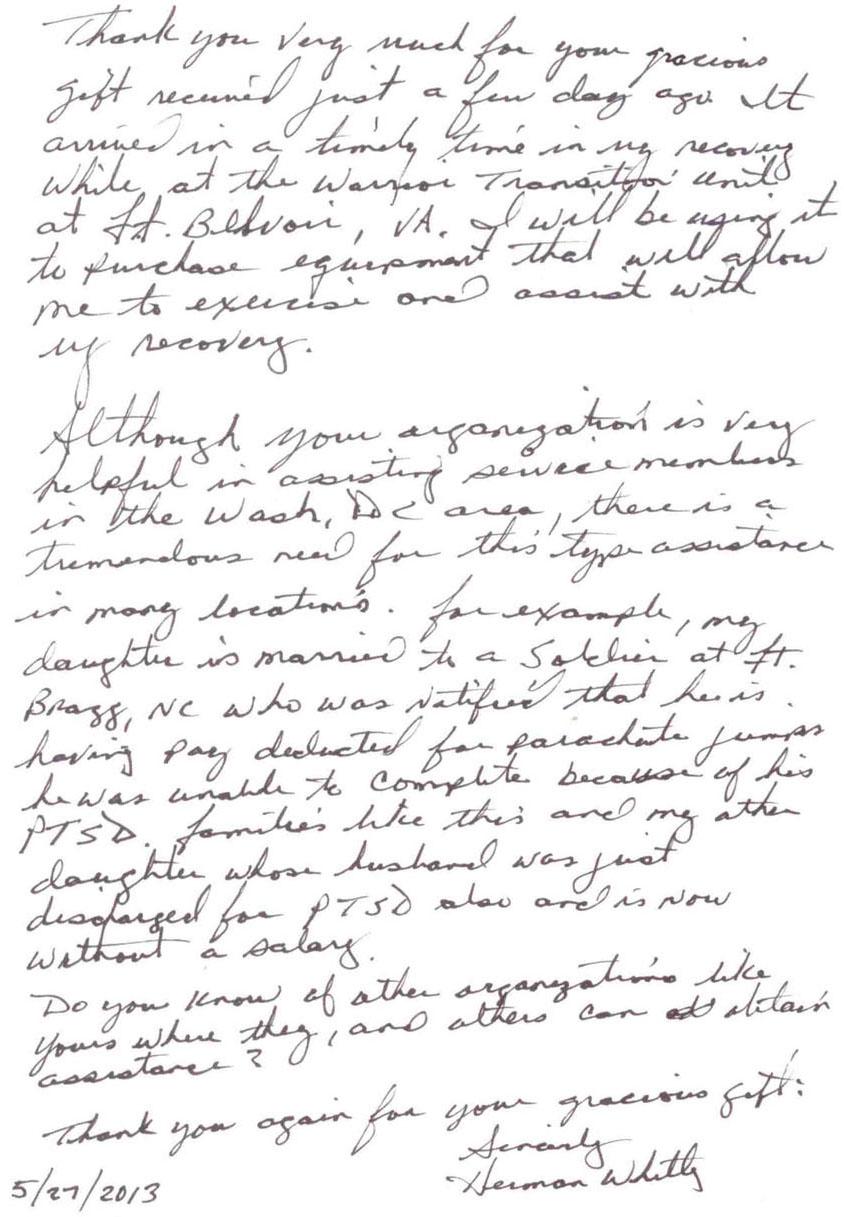 Thank you very much for your gracious
gift received just a few day ago. It
arrived in a timely time in my recovery
while at the Warrior Transition Unit
at Ft. Belvoir, VA. I will be using it
to purchase equipment that will allow
me to exercise and assist with
my recovery.
Although your organization is very
helpful in assisting service members
in the Wash, DC area, there is a
tremendous need for this type assistance
in many locations. For example, my
daughter is married to a Soldier at Ft.
Bragg, NC who was notified that he is
having pay deducted for parachute jumps
he was unable to complete because of his
PTSD. Families like this and my other
daughter whose husband was just
discharged for PTSD also and is now
without a salary.
Do you know of other organizations like
yours where they, and others can obtain
assistance?
Thank you again for your gracious gift.
Sincerely
Herman
5/27/2013